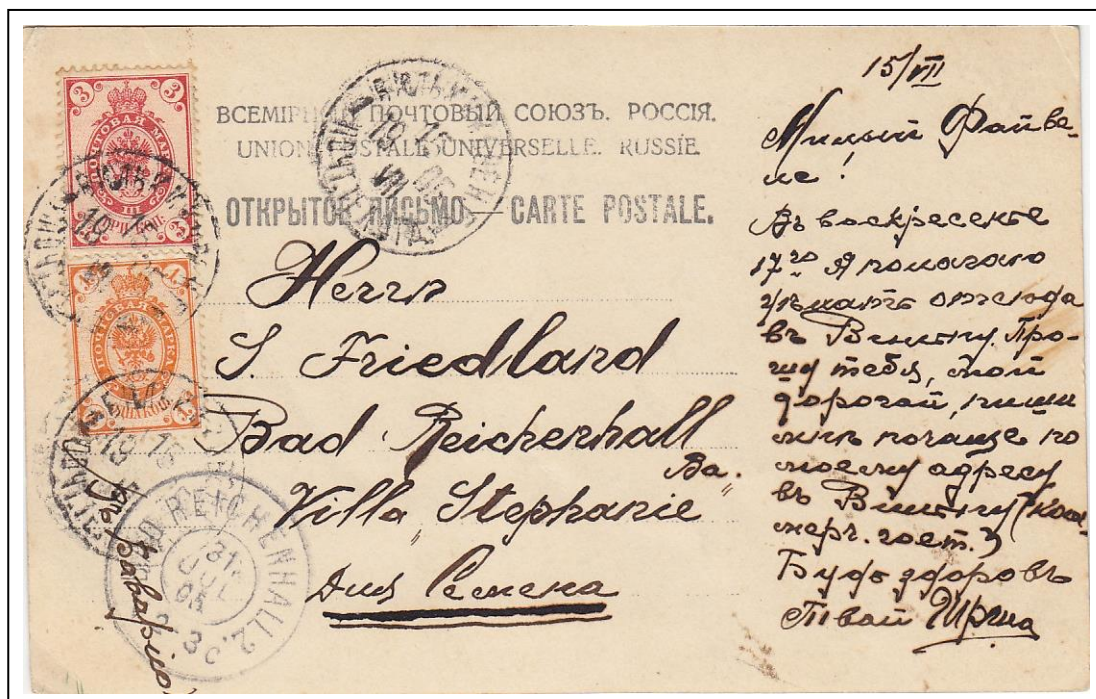 ВСЕМІРН ПОЧТОВЫЙ СОЮЗЪ. РОССІЯ.
UNION POSTALE UNIVERSELLE. RUSSIE
ОТКРЫТОЕ ПИСЬМО — CARTE POSTALE.
3 3
ПОЧТОВАЯ МАРКА
3 3
1 1
ПОЧТОВАЯ МАРКА
1 1
Herrn
S. Friedland
Bad Reichenhall
Ba.
Villa Stephanie
Для Семена
въ Баварію
BAD REICHENHALL 2.
31
JUL
05
2-3
15/VII
Милый Файве-
ле!
Въ воскресенье
17го Я полагаю
уѣхать отсюда
въ Вильну. Про-
шу тебя, мой
дорогой, пиши
мнѣ почаще по
моему адресу
въ Вильну (ком-
мерч. гост.)
Будь здоровъ
Твой